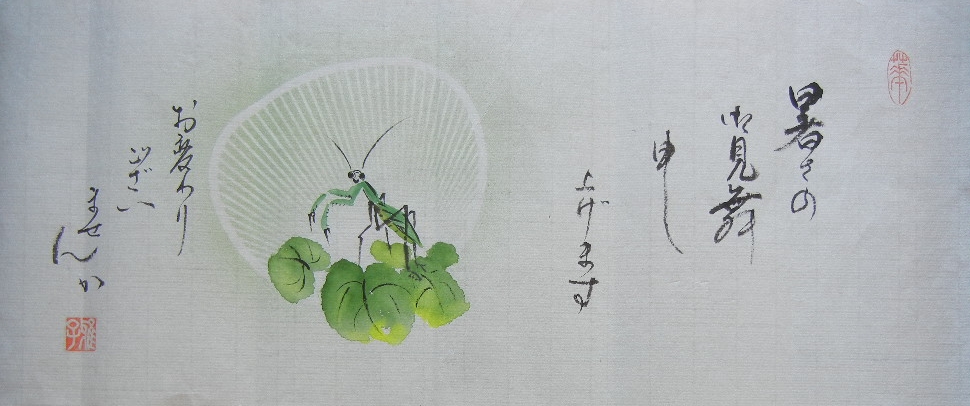 華
暑さの
御見舞
申し
上げます
お変わり
ござい
ませんか